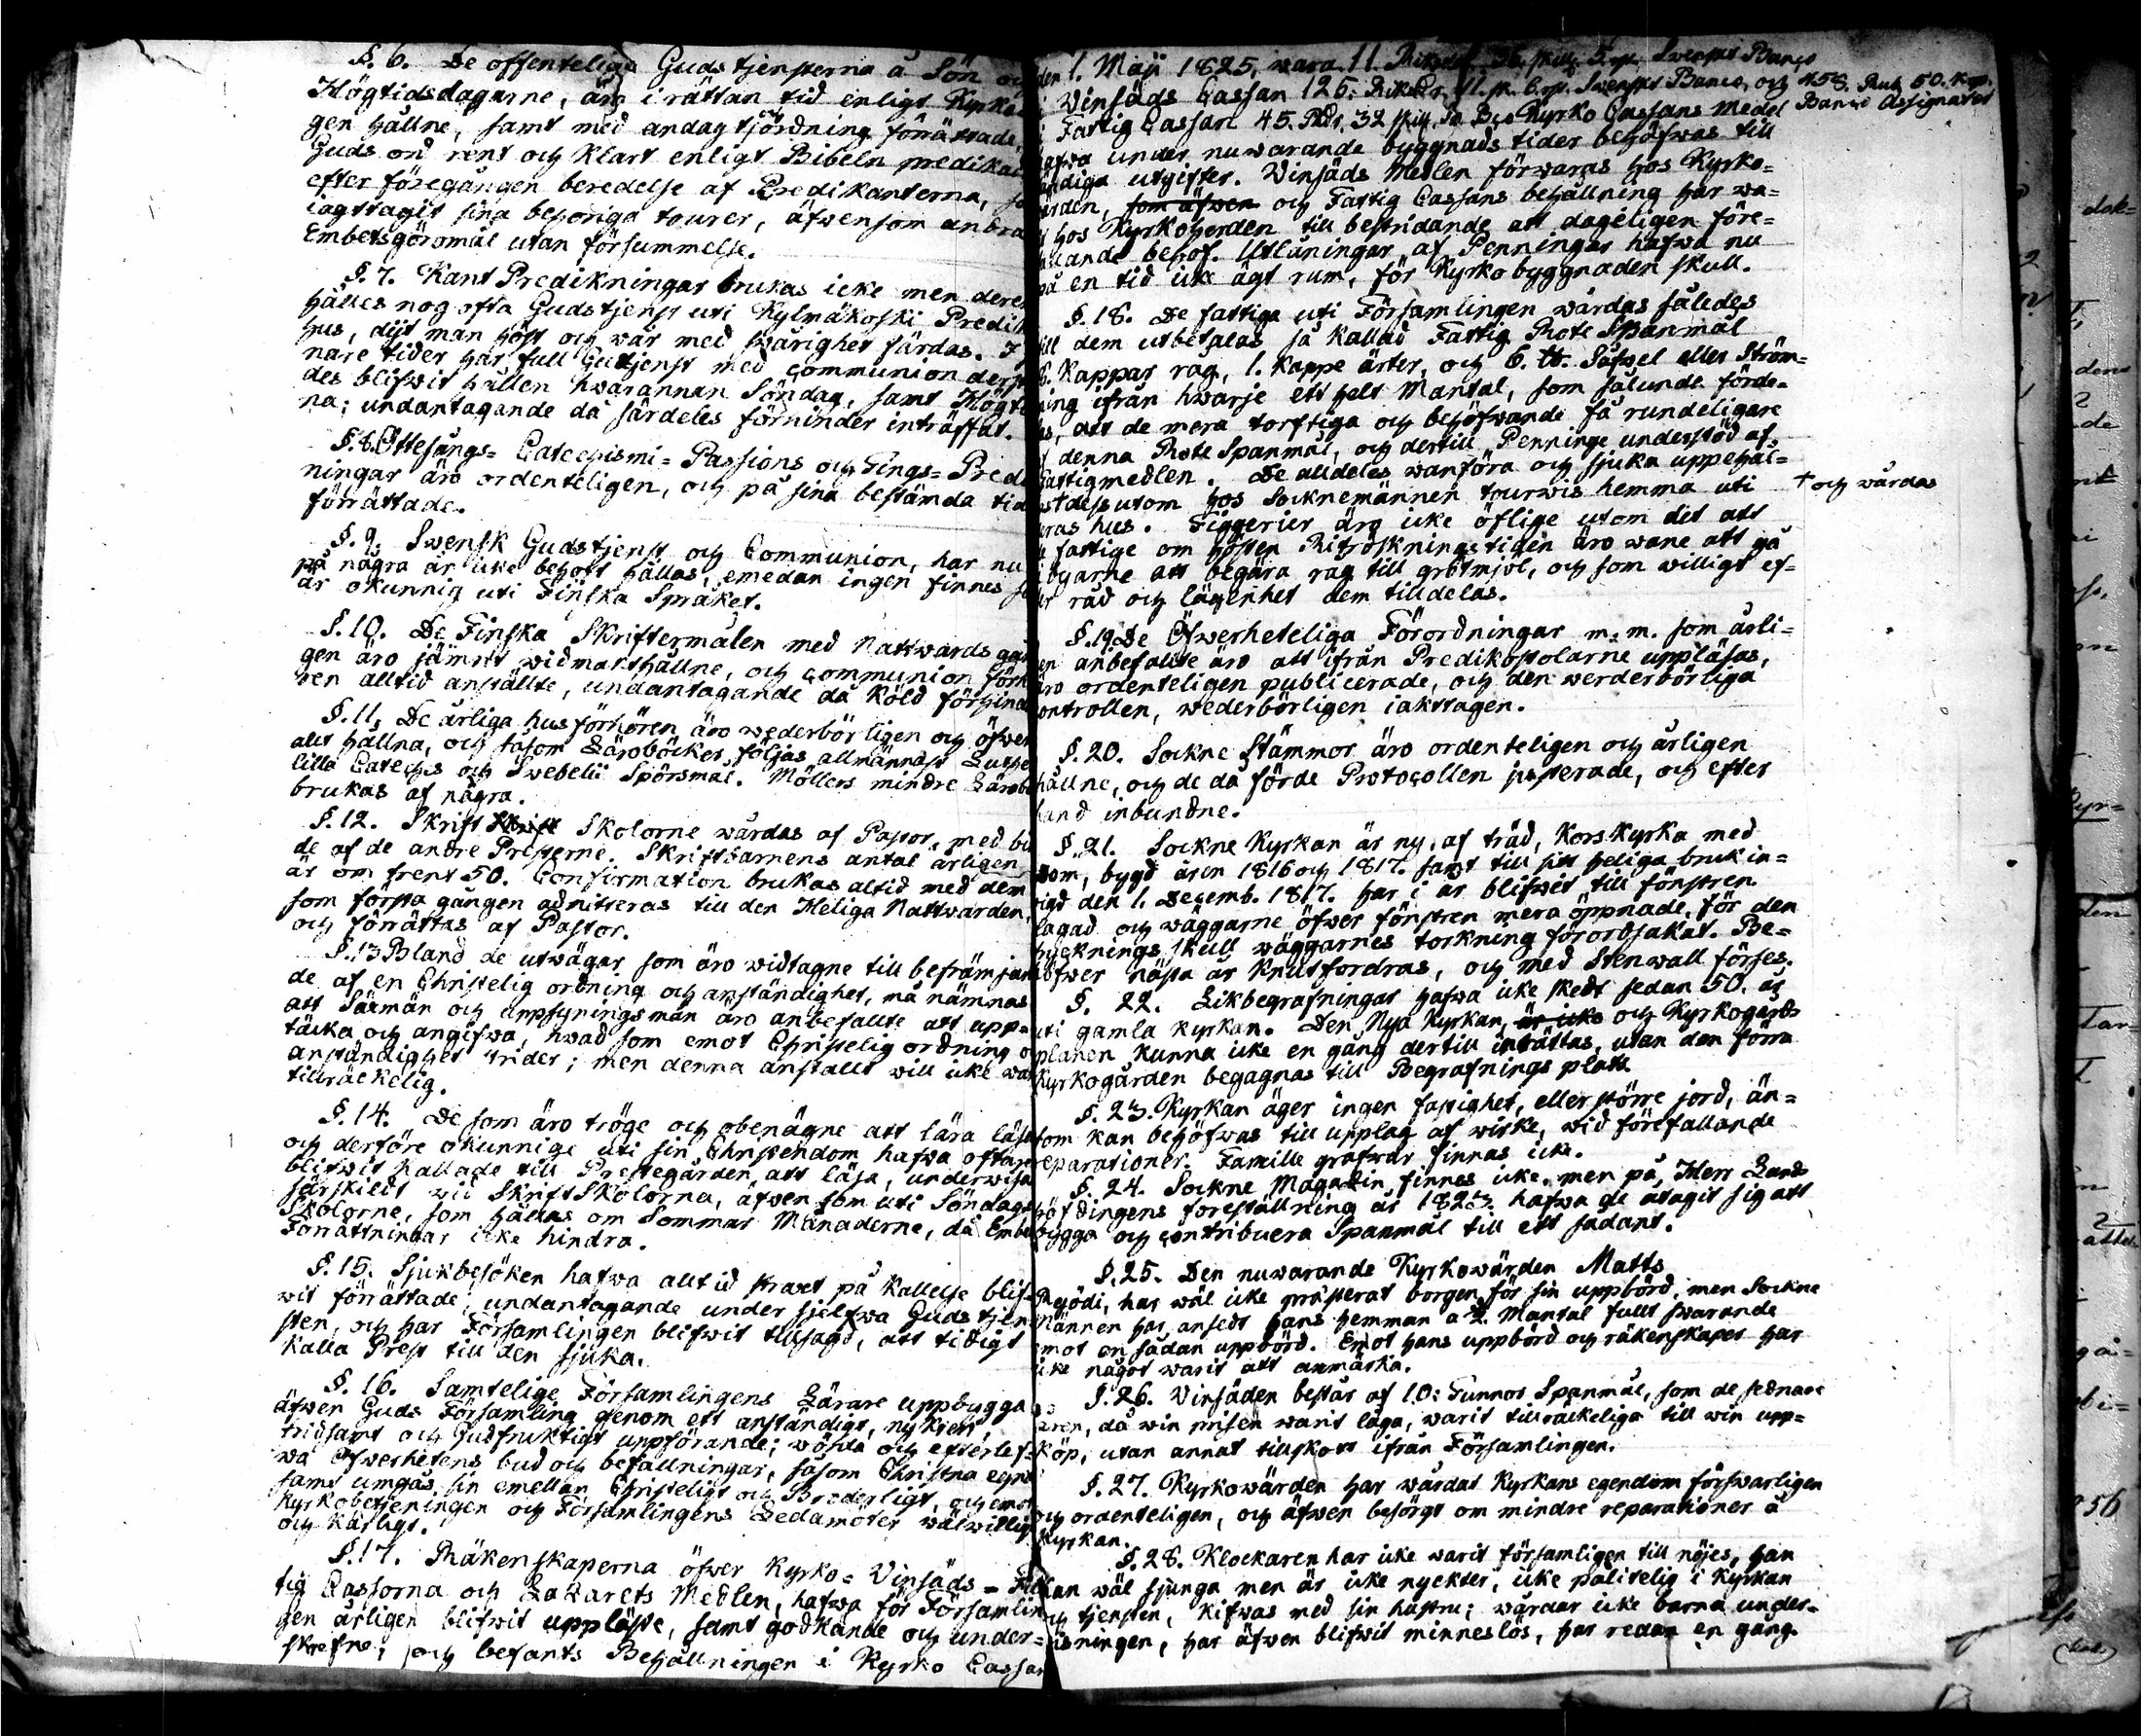 §. 6. De offenteliga Gudstjensterna å Sön oc
Högtidsdagarne, äro i rättan tid enligt Kyrko
gen hållne, samt med andagtförd­ning förrättade,
Guds ord rent och klart enligt Bibeln predikad
efter föregången beredelse af Predikanterna, so
iagttagit sina behöriga tourer, äfwensom andra
Embetsgöromål utan försummelse.
§. 7. Kant Predikningar brukas icke men deremot
hålles nog ofta Gudstjenst uti Kylmäkoski Predik
hus, dijt man höst och wår med swårighet färdas.
nare tider har full Gutjenst med communion der
des blifwit hållen hwarannan Söndag, samt Högti
na; undantagande då särdeles förhinder inträffat.
§. 8. Ottesångs= Catechismi= Passions och Tings= Predi
ningar äro ordenteligen, och på sina bestämda tid
förrättade.
§. 9. Swensk Gudstjenst och Communion, har nu
på några år icke behöft hållas, emedan ingen finnes so
är okunnig uti Finska Språket.
§. 10. De Finska Skriftermålen med Nattwards gån
gen äro jämnt widmakthållne, och communion förh
ren alltid anställte, undantagande då köld förhind
§. 11. De årliga husförhören äro wederbörligen och öfwer
allt hållna, och såsom Läroböcker följas allmännast Luthe
lilla Cateches och Swebelii Spörsmål. Möllers mindre Lärobo
brukas af några.
§. 12. Skrift Skolorne wårdas af Pastor, med bi
de af de andre Presterne. Skriftbarnens antal årligen
är om trent 50. Confirmation brukas altid med dem
som första gången admitteras till den Heliga Nattwarden,
och förrättas af Pastor.
§. 13 Bland de utwägar som äro widtagne till befrämjan
de af en Christelig ordning och anständighet, må nämnas
att Säxmän och uppsyningsmän äro anbefallte att upp=
täcka och angifwa, hwad som emot Christelig ordning o
anständighet strider; men denna anstallt will icke wa
tillräckelig.
§. 14. De som äro tröge och obenägne att lära läsa
och derföre okunnige uti sin Christendom hafwa oftare
blifwit kallade till Prestegården att läsa, underwisa
särskildt wid Skrift Skolorna, äfwen som uti Söndags
Skolorne, som hållas om Sommar Månaderne, då Embe
Förrättningar icke hindra.
§. 15. Sjukbesöken hafwa alltid straxt på kallelse blif=
wit förrättade, undantagande under sjelfwa Gudstjen
sten, och har Församlingen blifwit tillsagd, att tidigt
kalla Prest till den sjuka.
§. 16. Samtelige Församlingens Lärare uppbygga
äfwen Guds Församling genom ett anständigt, nyktert,
fridsamt och Gudfruktigt uppförande; wörda och efterlef=
wa Öfwerhetens bud och befallningar, såsom Christna egna
samt umgås sin emellan Christeligt och Broderligt, och emot
Kyrkobetjeningen och Församlingens Ledamöter wälwilligt
och kärligt.
§. 17. Räkenskaperna öfwer Kyrko= Vinsäds = Fat
tig Cassorna och Lazarets Medlen, hafwa för Församlin
gen årligen blifwit uppläste, samt godkände och under=
skrefne; och befants Behållningen i Kyrko Cassan
den 1. Maji 1825, wara 11. Riksdal. 36. skill. 5. rst. Swenskt Banco
Vinsäds Cassan 126. Riksdr. 11. sk. 6. rst. Swenskt Banco, och 458. Rub. 50. Kop.
Banco Assignater
Fattig Cassan 45. Rdr. 32 skill. Sw Bco Kyrko Cassans medel
hafwa under nuwarande byggnads tider behöfwas till
ändiga utgifter. Vinsäds Medlen förwaras hos Kyrko=
ärden, som äfwen och Fattig Cassans behållning har wa=
t hos Kyrkoherden till bestridande att dageligen före=
llande behof. Utlåningar af Penningar hafwa nu
på en tid icke ägt rum, för Kyrkobyggnaden skull.
§. 18. De fattiga uti Församlingen wårdas således
till dem utbetalas så kallad Fattig Rote Spanmål
6. Kappar råg, 1. kappe ärter, och 6. ℔. Säfwel eller Ström=
ming ifrån hwarje ett helt Mantal, som sålunda förde=
las, att de mera torftiga och behöfwande få rundeligare
af denna Rote Spanmål, och dertill Penninge understöd af
Fattigmedlen. De alldeles wanföra och sjuka uppehål=
as † dessutom hos Socknemännen tourwis hemma uti
† och wårdas
deras hus. Tiggerier äro icke öflige utom det att
de fattige om hösten Ritröskningstiden äro wane att gå
i byarne att begära råg till grötmjöl, och som willigt ef=
ter råd och lägenhet dem tilldelas.
§. 19. De Öfwerheteliga Förordningar m. m. som årli=
gen anbefallte äro att ifrån Predikostolarne uppläsas,
äro ordenteligen publicerade, och den werderbörliga
controllen, wederbörligen iakttagen.
§. 20. Sockne Stämmor äro ordenteligen och årligen
hållne, och de då förde Protocollen justerade, och efter
hand inbundne.
§. 21. Sockne Kyrkan är ny, af träd, Kors Kyrka med
Dom, bygd åren 1816 och 1817. samt till sitt heliga bruk in=
wigd den 1. Decemb. 1817. har i år blifwit till fönstren
lagad och wäggarne öfwer fönstren mera öppnade, för den
tryckning skull wäggarnes torkning förorsakat. Be=
höfwer nästa år knutfordras, och med Stenwall förses.
§. 22. Likbegrafningar hafwa icke skedt sedan 50. år
uti gamla kyrkan. Den Nya Kyrkan, är icke och Kyrkogårds
planen kunna icke en gång dertill inrättas, utan den förra
Kyrkogården begagnas till Begrafnings plats
§. 23. Kyrkan äger ingen fastighet, eller större jord, än=
som kan behöfwas till upplag af wirke, wid förefallande
reparationer. Famille grafwar finnas icke.
§. 24. Sockne Magazin finnes icke, men på, Herr Lands
höfdingens föreställning år 1823. hafwa de åtagit sig att
bygga och contribuera Spanmål till ett sådant.
§. 25. Den nuwarande Kyrkowärden Matts
Rejödi, har wäl icke præsterat borgen för sin uppbörd, men Sockne
männen har ansedt hans hemman a ½ Mantal fullt swarande
emot en sådan uppbörd. Emot hans uppbörd och räkenskaper har
icke något warit att anmärka.
§. 26. Vinsäden består af 10: Tunnor Spanmål, som de sednare
åren, då win prisen warit låga, warit tillräckeliga till win upp=
köp, utan annat tillskott ifrån Församlingen.
§. 27. Kyrkowärden har wårdat Kyrkans egendom förswarligen
och ordenteligen, och äfwen besörgt om mindre reparationer å
Kyrkan.
§. 28. Klockaren har icke warit församligen till nöjes, han
kan wäl sjunga men är icke nyckter, icke palitelig i Kyrkan
och tjensten, kifwas med sin hustru; wårdar icke barna under=
wisningen, har äfwen blifwit minneslös, har redan en gång